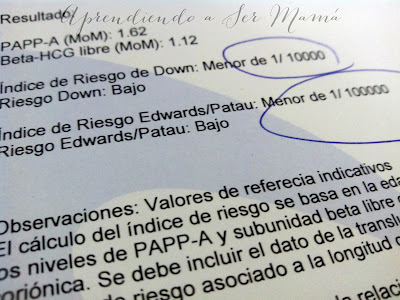 Aprendiendo a Ser Mamá
Resultado
PAPP-A (MoM): 1.62
Beta-HCG libre (MoM): 1.12
Índice de Riesgo de Down: Menor de 1/ 10000
Riesgo Down: Bajo
Índice de Riesgo Edwards/Patau: Menor de 1/ 100000
Riesgo Edwards/Patau: Bajo
Observaciones: Valores de referecia indicativos
El cálculo del índice de riesgo se basa en la eda
os niveles de PAPP-A y subunidad beta libre
coriónica. Se debe incluir el dato de la translu
de riesgo asociado a la longitud
la relació